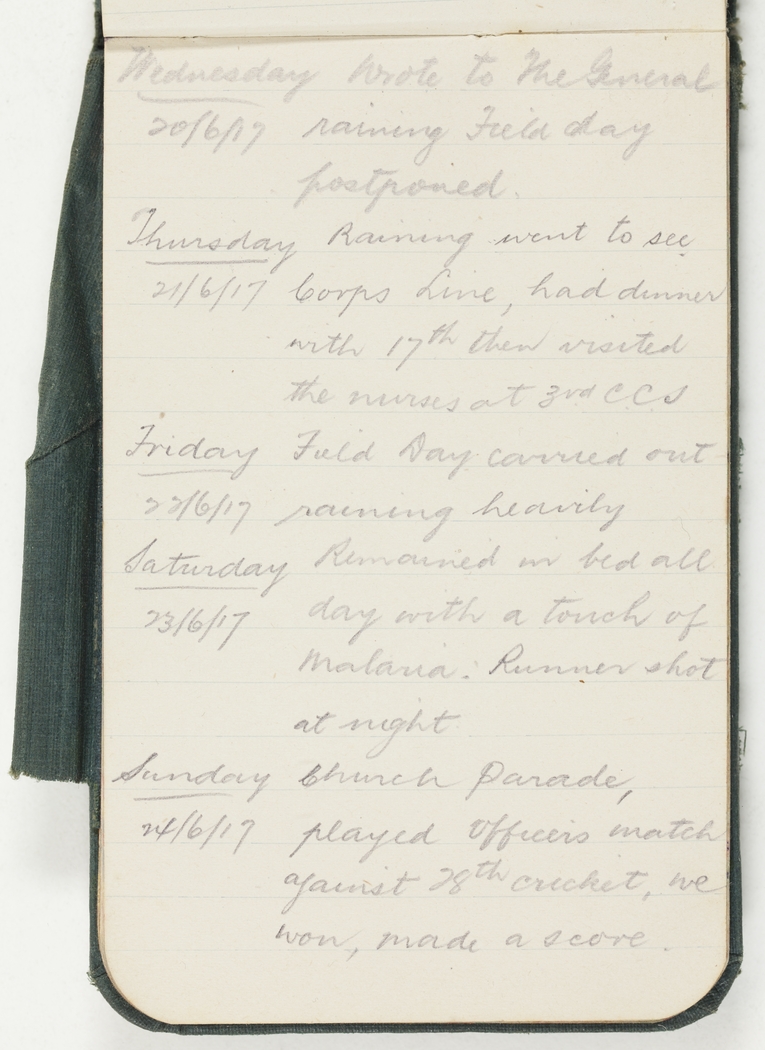 Wednesday Wrote to The General
20/6/17 raining Field day
postponed.
Thursday Raining went to see
21/6/17 Corps Line, had dinner
with 17th then visited
the nurses at 3rd CCS
Friday Field Day carried out
22/6/17 raining heavily
Saturday Remained in bed all
23/6/17 day with a touch of
Malaria. Runner shot
at night
Sunday Church Parade,
24/6/17 played Officers match
against 28th cricket, we
won, made a score.